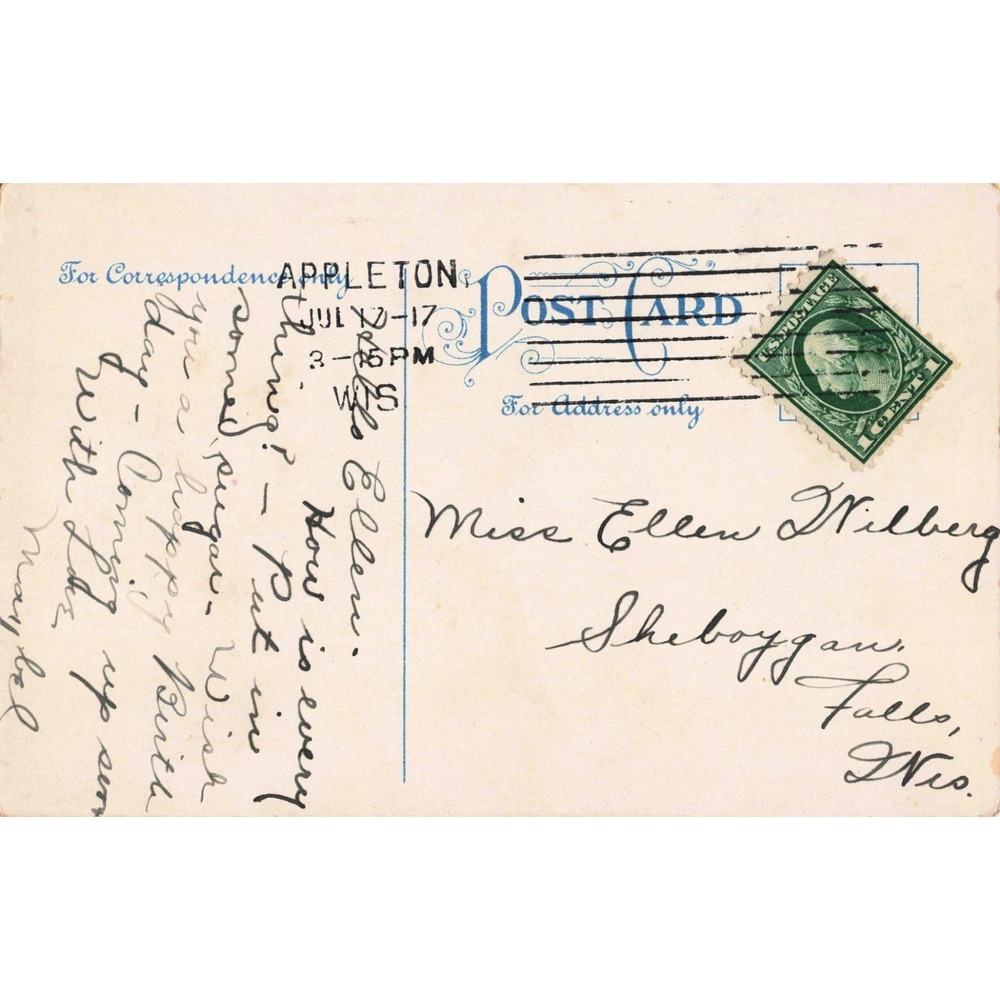 For Correspondence only
APPLETON,
JUL 17-17
3-15 PM
WIS
POST CARD
For Address only
U.S. POSTAGE
1 CENT 1
Hello Ellen.
How is every
thing? - Put in
some sugar - Wish
you a happy Birth
day - Coming up soon
With Love
Maybel
Miss Ellen Wilberg
Sheboygan
Falls,
Wis.